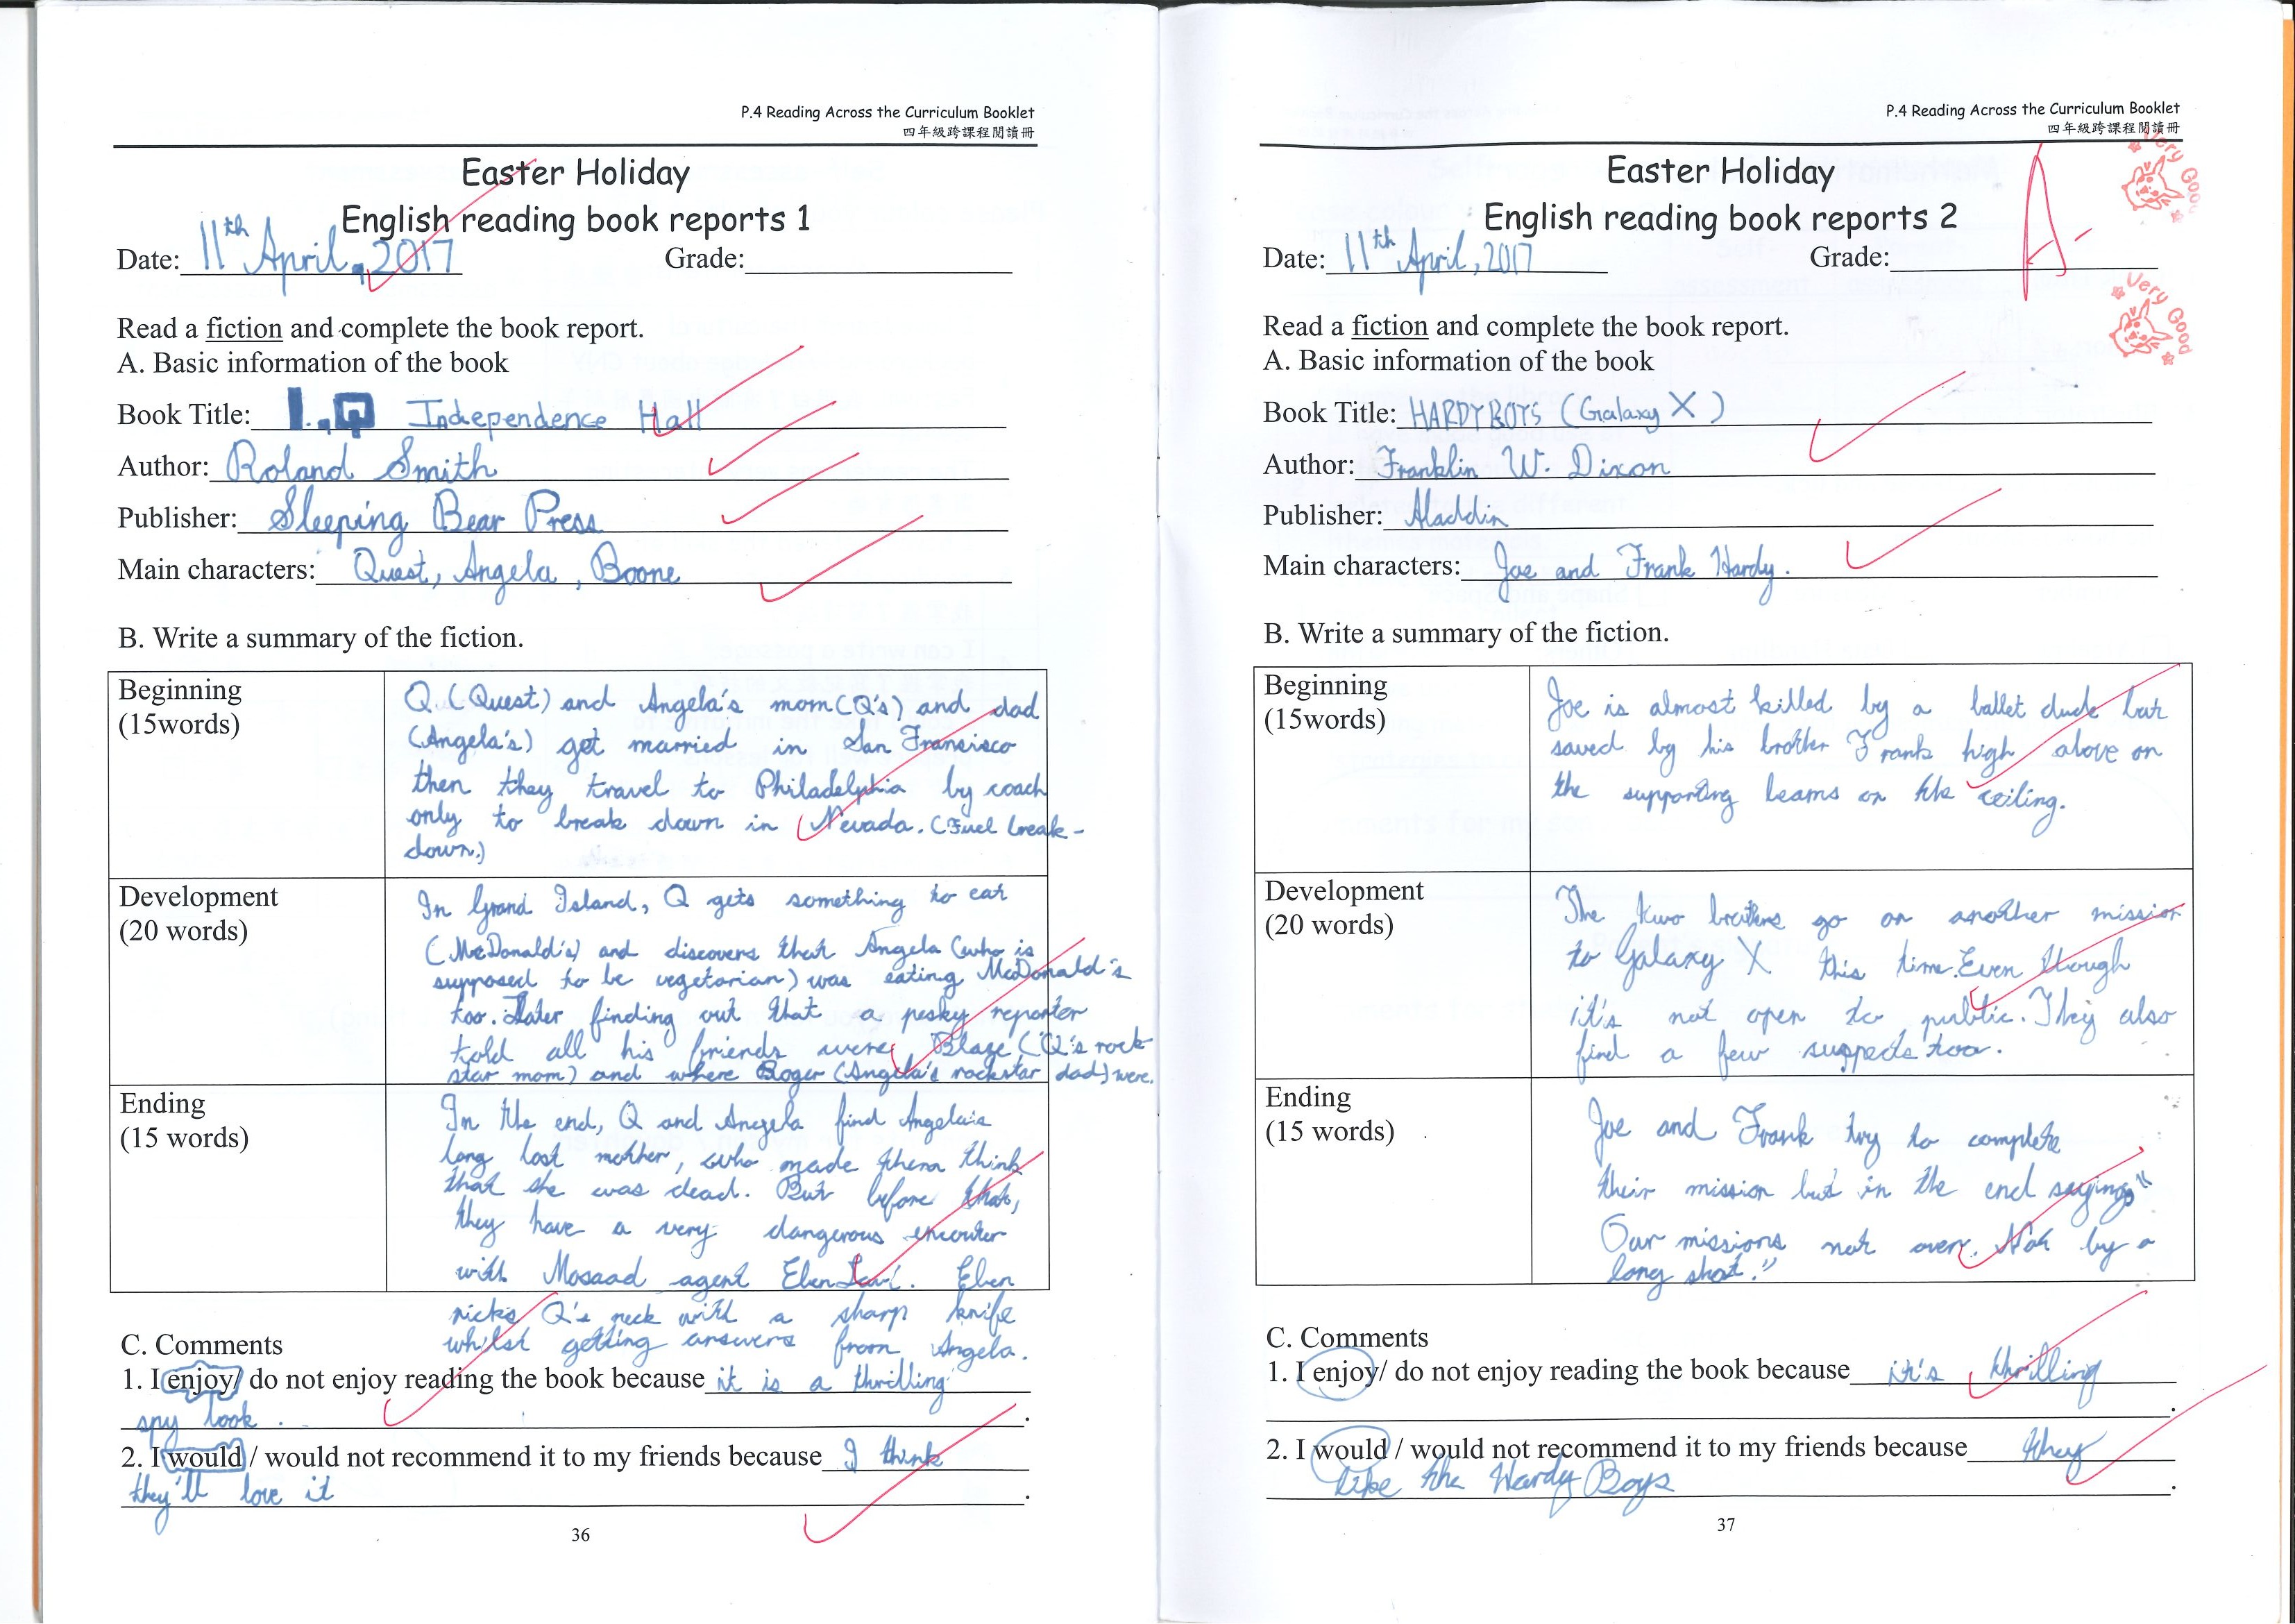 P.4 Reading Across the Curriculum Booklet
四年級跨課程閱讀冊
Easter Holiday
English reading book reports 1
Date: 11th April, 2017 Grade:
Read a fiction and complete the book report.
A. Basic information of the book
Book Title: I,Q Independence Hall
Author: Roland Smith
Publisher: Sleeping Bear Press
Main characters: Quest, Angela, Boone
B. Write a summary of the fiction.
Beginning
(15words)
Q (Quest) and Angela's mom (Q's) and dad
(Angela's) get married in San Fransisco
then they travel to Philadelphia by coach
only to break down in Nevada. (Fuel break-
down.)
Development
(20 words)
In Grand Island, Q gets something to eat
(McDonald's) and discovers that Angela (who is
supposed to be vegetarian) was eating McDonald's
too. Later finding out that a pesky reporter
told all his friends were Blaze (Q's rock
star mom) and where Roger (Angela's rockstar dad) were.
Ending
(15 words)
In the end, Q and Angela find Angela's
long lost mother, who made them think
that she was dead. But before that,
they have a very dangerous encouter
with Mosaad agent Eben Lavi. Eben
nicks Q's neck with a sharp knife
whilst getting answers from Angela.
C. Comments
1. I enjoy/ do not enjoy reading the book because it is a thrilling
spy book .
2. I would / would not recommend it to my friends because I think
they'll love it .
36
P.4 Reading Across the Curriculum Booklet
四年級跨課程閱讀冊
Very Good
Easter Holiday
English reading book reports 2
A-
Date: 11th April, 2017 Grade:
Very Good
Read a fiction and complete the book report.
A. Basic information of the book
Book Title: HARDY BOYS (Galaxy X)
Author: Franklin W. Dixon
Publisher: Aladdin
Main characters: Joe and Frank Hardy.
B. Write a summary of the fiction.
Beginning
(15words)
Joe is almost killed by a ballet dude but
saved by his brother Frank high above on
the supporting beams on the ceiling.
Development
(20 words)
The two brothers go on another mission
to Galaxy X this time. Even though
it's not open to public. They also
find a few suspects too.
Ending
(15 words)
Joe and Frank try to complete
their mission but in the end saying, "
Our missions not over. Not by a
long shot."
C. Comments
1. I enjoy/ do not enjoy reading the book because it's thrilling
.
2. I would / would not recommend it to my friends because they
like the Hardy Boys .
37